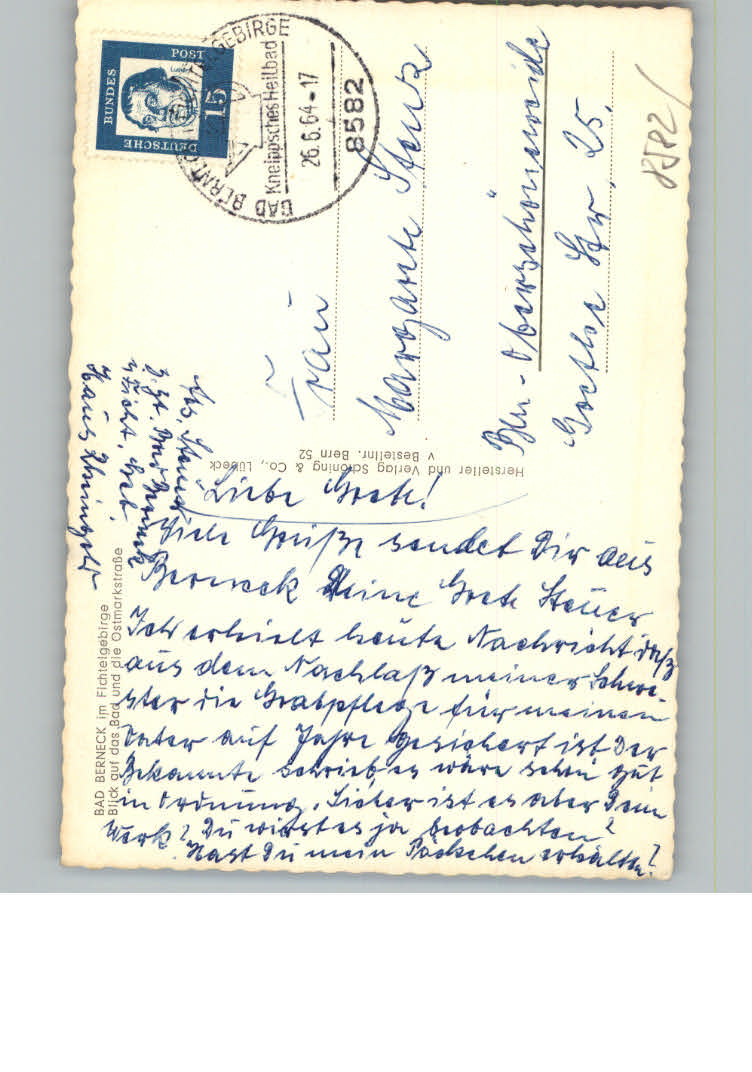 DEUTSCHE
BUNDES
POST
15
Luther
BAD BERNECK FICHTELGEBIRGE
Kneippsches Heilbad
26.6.64-17
8582
8582
Frau
Margarete
Bln-Oberschöneweide
Goethe Str. 25.
Hersteller und Verlag Schöning & Co., Lübeck
v Bestellnr. Bern 52
Abs. Steuer
z. Zt. Bad Berneck
Haus Rheingold
BAD BERNECK im Fichtelgebirge
Blick auf das Bad und die Ostmarkstraße
Liebe Grete!
Viele Grüße sendet Dir aus
Berneck Deine Grete Steuer
Ich erhielt heute Nachricht daß
aus dem Nachlaß meiner Schwe-
ster die Grabpflege für meinen
Vater auf Jahre gesichert ist Der
Bekannte schrieb, es wäre schön gut
in Ordnung. Sicher ist es aber Dein
Werk? Du wirst es ja beobachten?
Hast Du mein Päckchen erhalten?